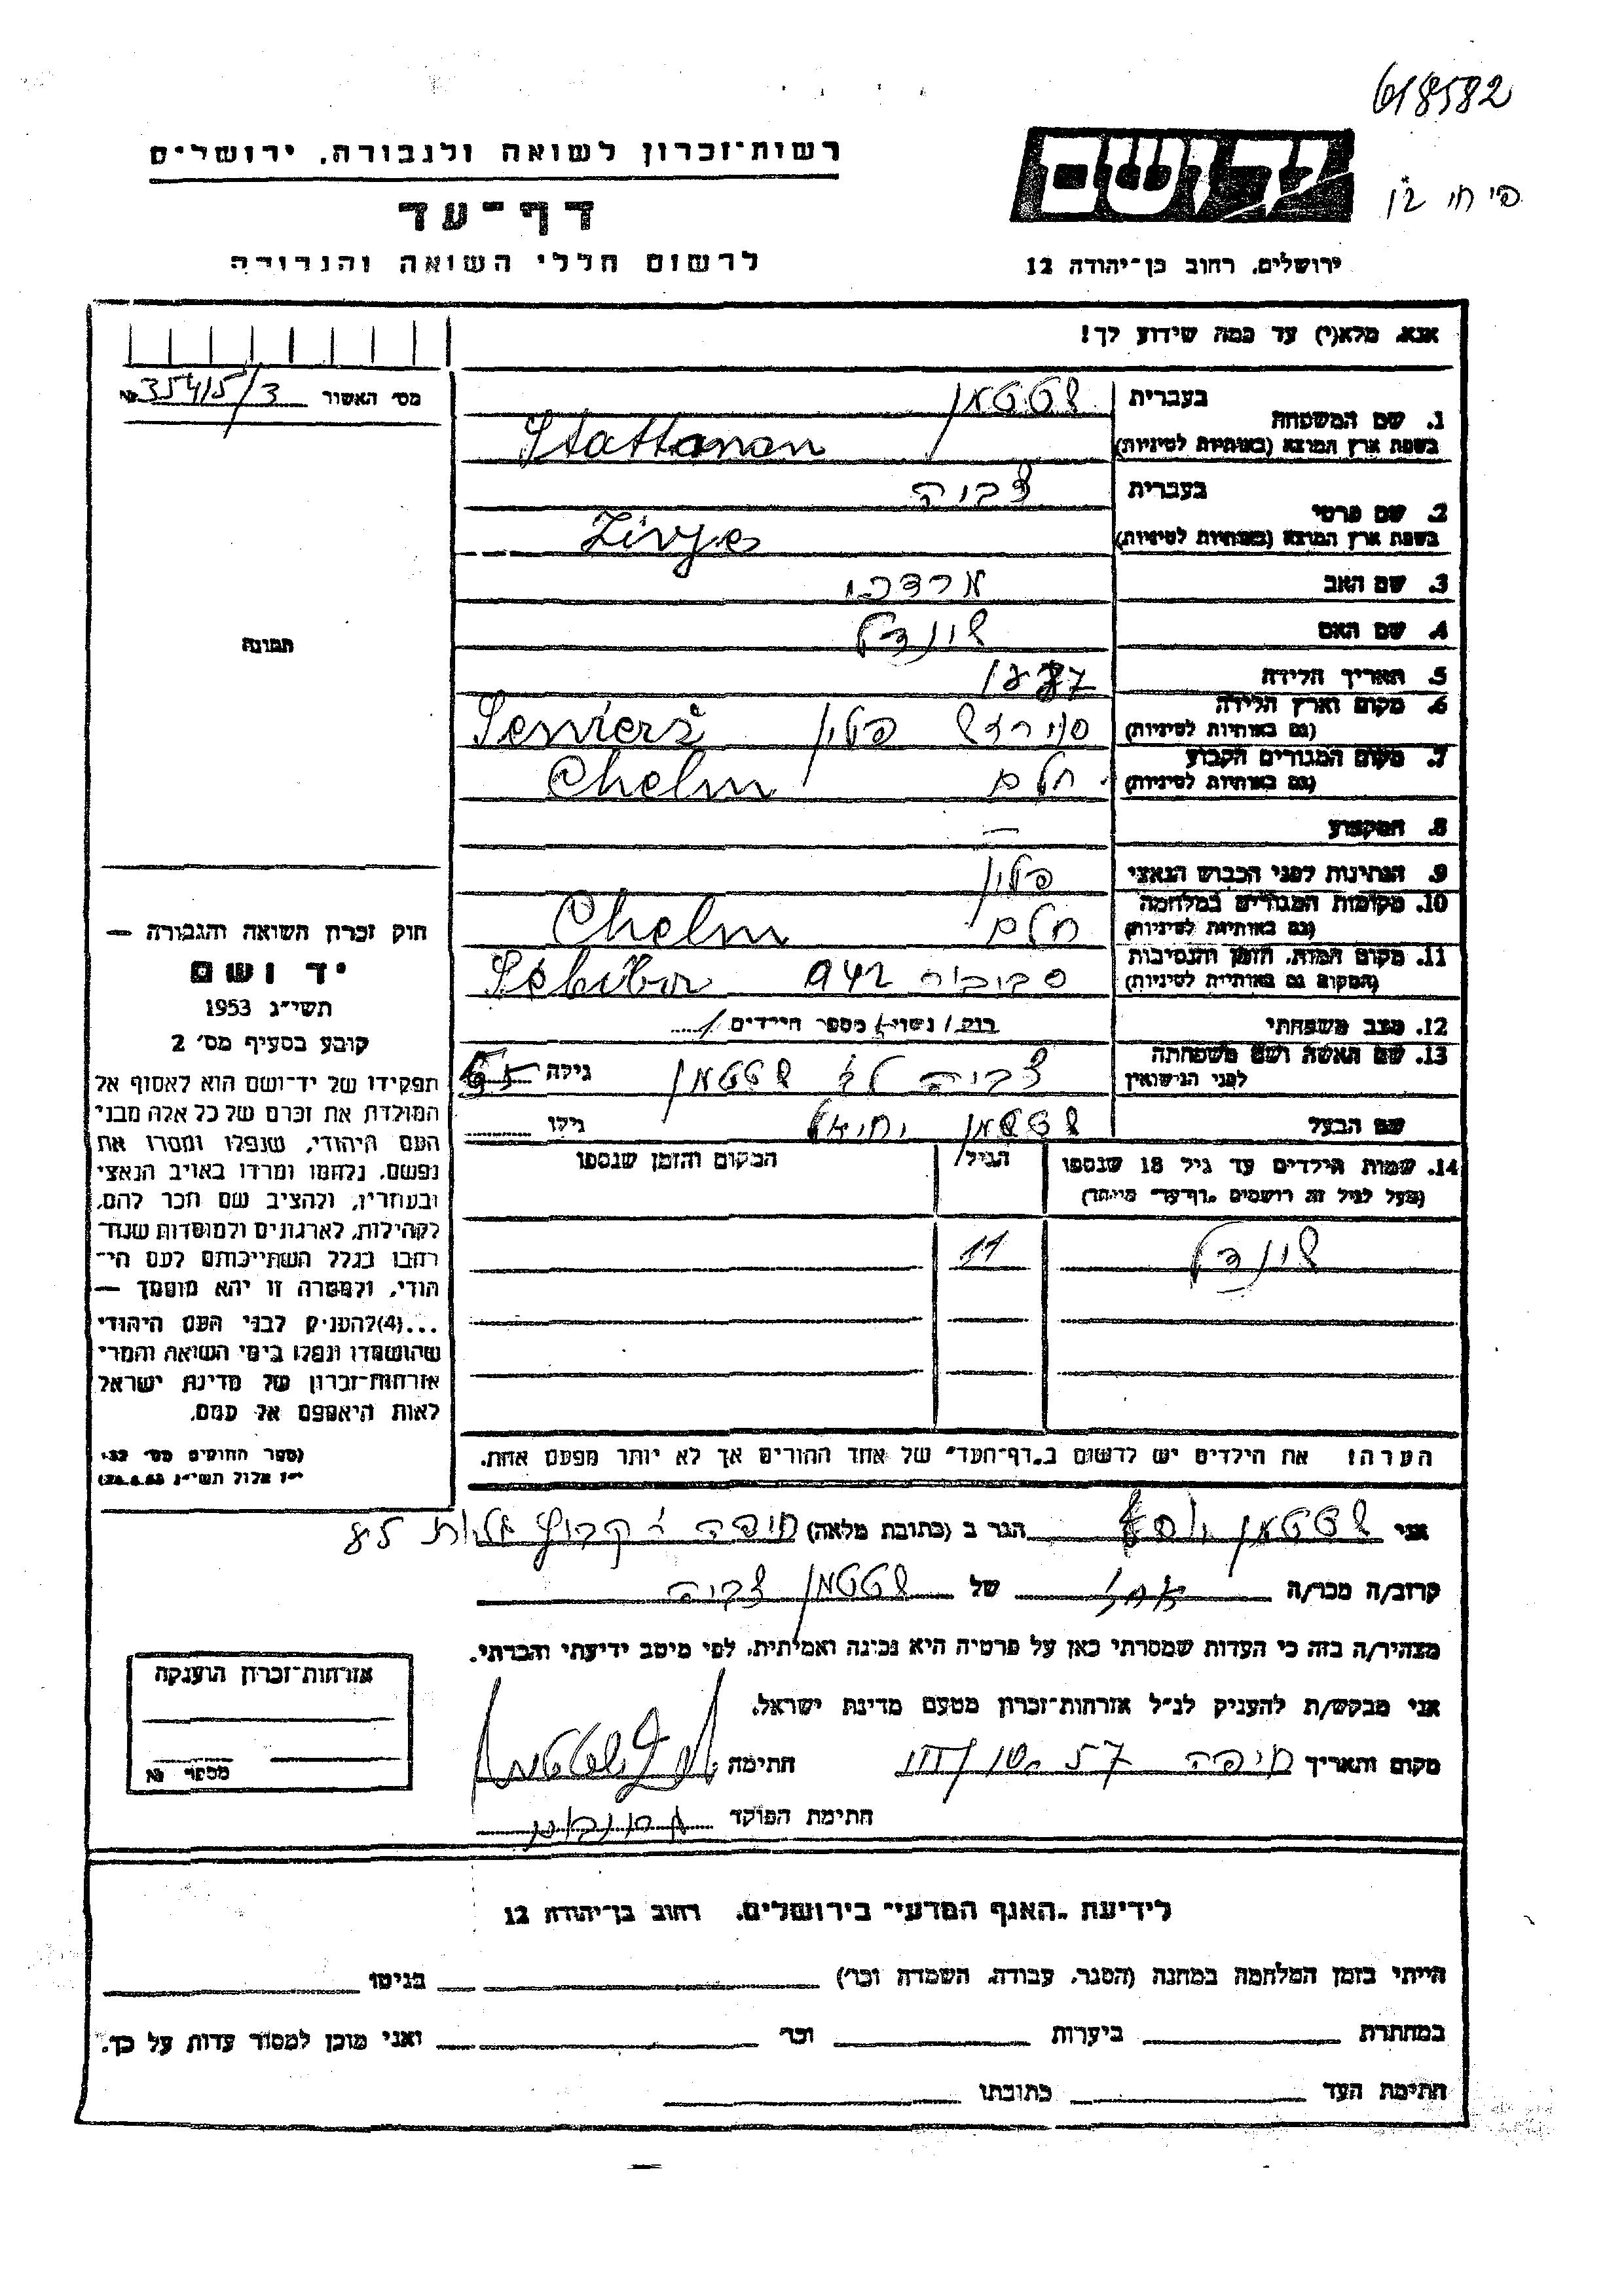 618582
רשות־זכרון לשואה ולגבורה, ירושלים
דף־עד
לרשום חללי השואה והגבורה
יד ושם
ירושלים, רחוב בן־יהודה 12
אנא, מלא(י) עד כמה שידוע לך!
מס׳ האשור 35415/3 №
תמונה
1. שם המשפחה
בעברית שטטמן
בשפת ארץ המוצא (באותיות לטיניות) Stattman
2. שם פרטי
בעברית צביה
בשפת ארץ המוצא (באותיות לטיניות) Zivje
3. שם האב מרדכי
4. שם האם שינדל
5. תאריך הלידה
6. מקום וארץ הלידה פולין
(גם באותיות לטיניות)
7. מקום המגורים הקבוע חלם Chelm
(גם באותיות לטיניות)
8. המקצוע —
9. הנתינות לפני הכבוש הנאצי פולין
10. מקומות המגורים במלחמה חלם Chelm
(גם באותיות לטיניות)
11. מקום המות, הזמן והנסיבות סביבור 942 Sobibor
(המקום גם באותיות לטיניות)
12. מצב משפחתי רווק / נשוי / מספר הילדים 1
13. שם האשה ושם משפחתה צביה שטטמן גילה
לפני הנישואין
שם הבעל שטטמן יחיאל גילו
14. שמות הילדים עד גיל 18 שנספו הגיל המקום והזמן שנספו
(מעל לגיל זה רושמים „דף־עד״ מיוחד)
שינדל 11
הערה: את הילדים יש לרשום ב„דף־העד״ של אחד ההורים אך לא יותר מפעם אחת.
חוק זכרון השואה והגבורה —
יד ושם
תשי״ג 1953
קובע בסעיף מס׳ 2
תפקידו של יד־ושם הוא לאסוף אל
המולדת את זכרם של כל אלה מבני
העם היהודי, שנפלו ומסרו את
נפשם, נלחמו ומרדו באויב הנאצי
ובעוזריו, ולהציב שם וזכר להם,
לקהילות, לארגונים ולמוסדות שנח־
רבו בגלל השתייכותם לעם הי־
הודי, ולמטרה זו יהא מוסמך —
...(4) להעניק לבני העם היהודי
שהושמדו ונפלו בימי השואה והמרי
אזרחות־זכרון של מדינת ישראל
לאות היאספם אל עמם.
(ספר החוקים מס׳ 132
י״ז אלול תשי״ג 28.8.53)
אני שטטמן יוסף הגר ב (כתובת מלאה) חיפה קבוץ גלויות
קרוב/ה מכר/ה של שטטמן צביה
מצהיר/ה בזה כי העדות שמסרתי כאן על פרטיה היא נכונה ואמיתית, לפי מיטב ידיעתי והכרתי.
אני מבקש/ת להעניק לנ״ל אזרחות־זכרון מטעם מדינת ישראל.
מקום ותאריך חיפה חתימה
חתימת הפוקד
אזרחות־זכרון הוענקה
מספר №
לידיעת „האגף המדעי״ בירושלים, רחוב בן־יהודה 12
הייתי בזמן המלחמה במחנה (הסגר, עבודה, השמדה וכו׳) בגיטו
במחתרת ביערות וכו׳ ואני מוכן למסור עדות על כך.
חתימת העד כתובתו